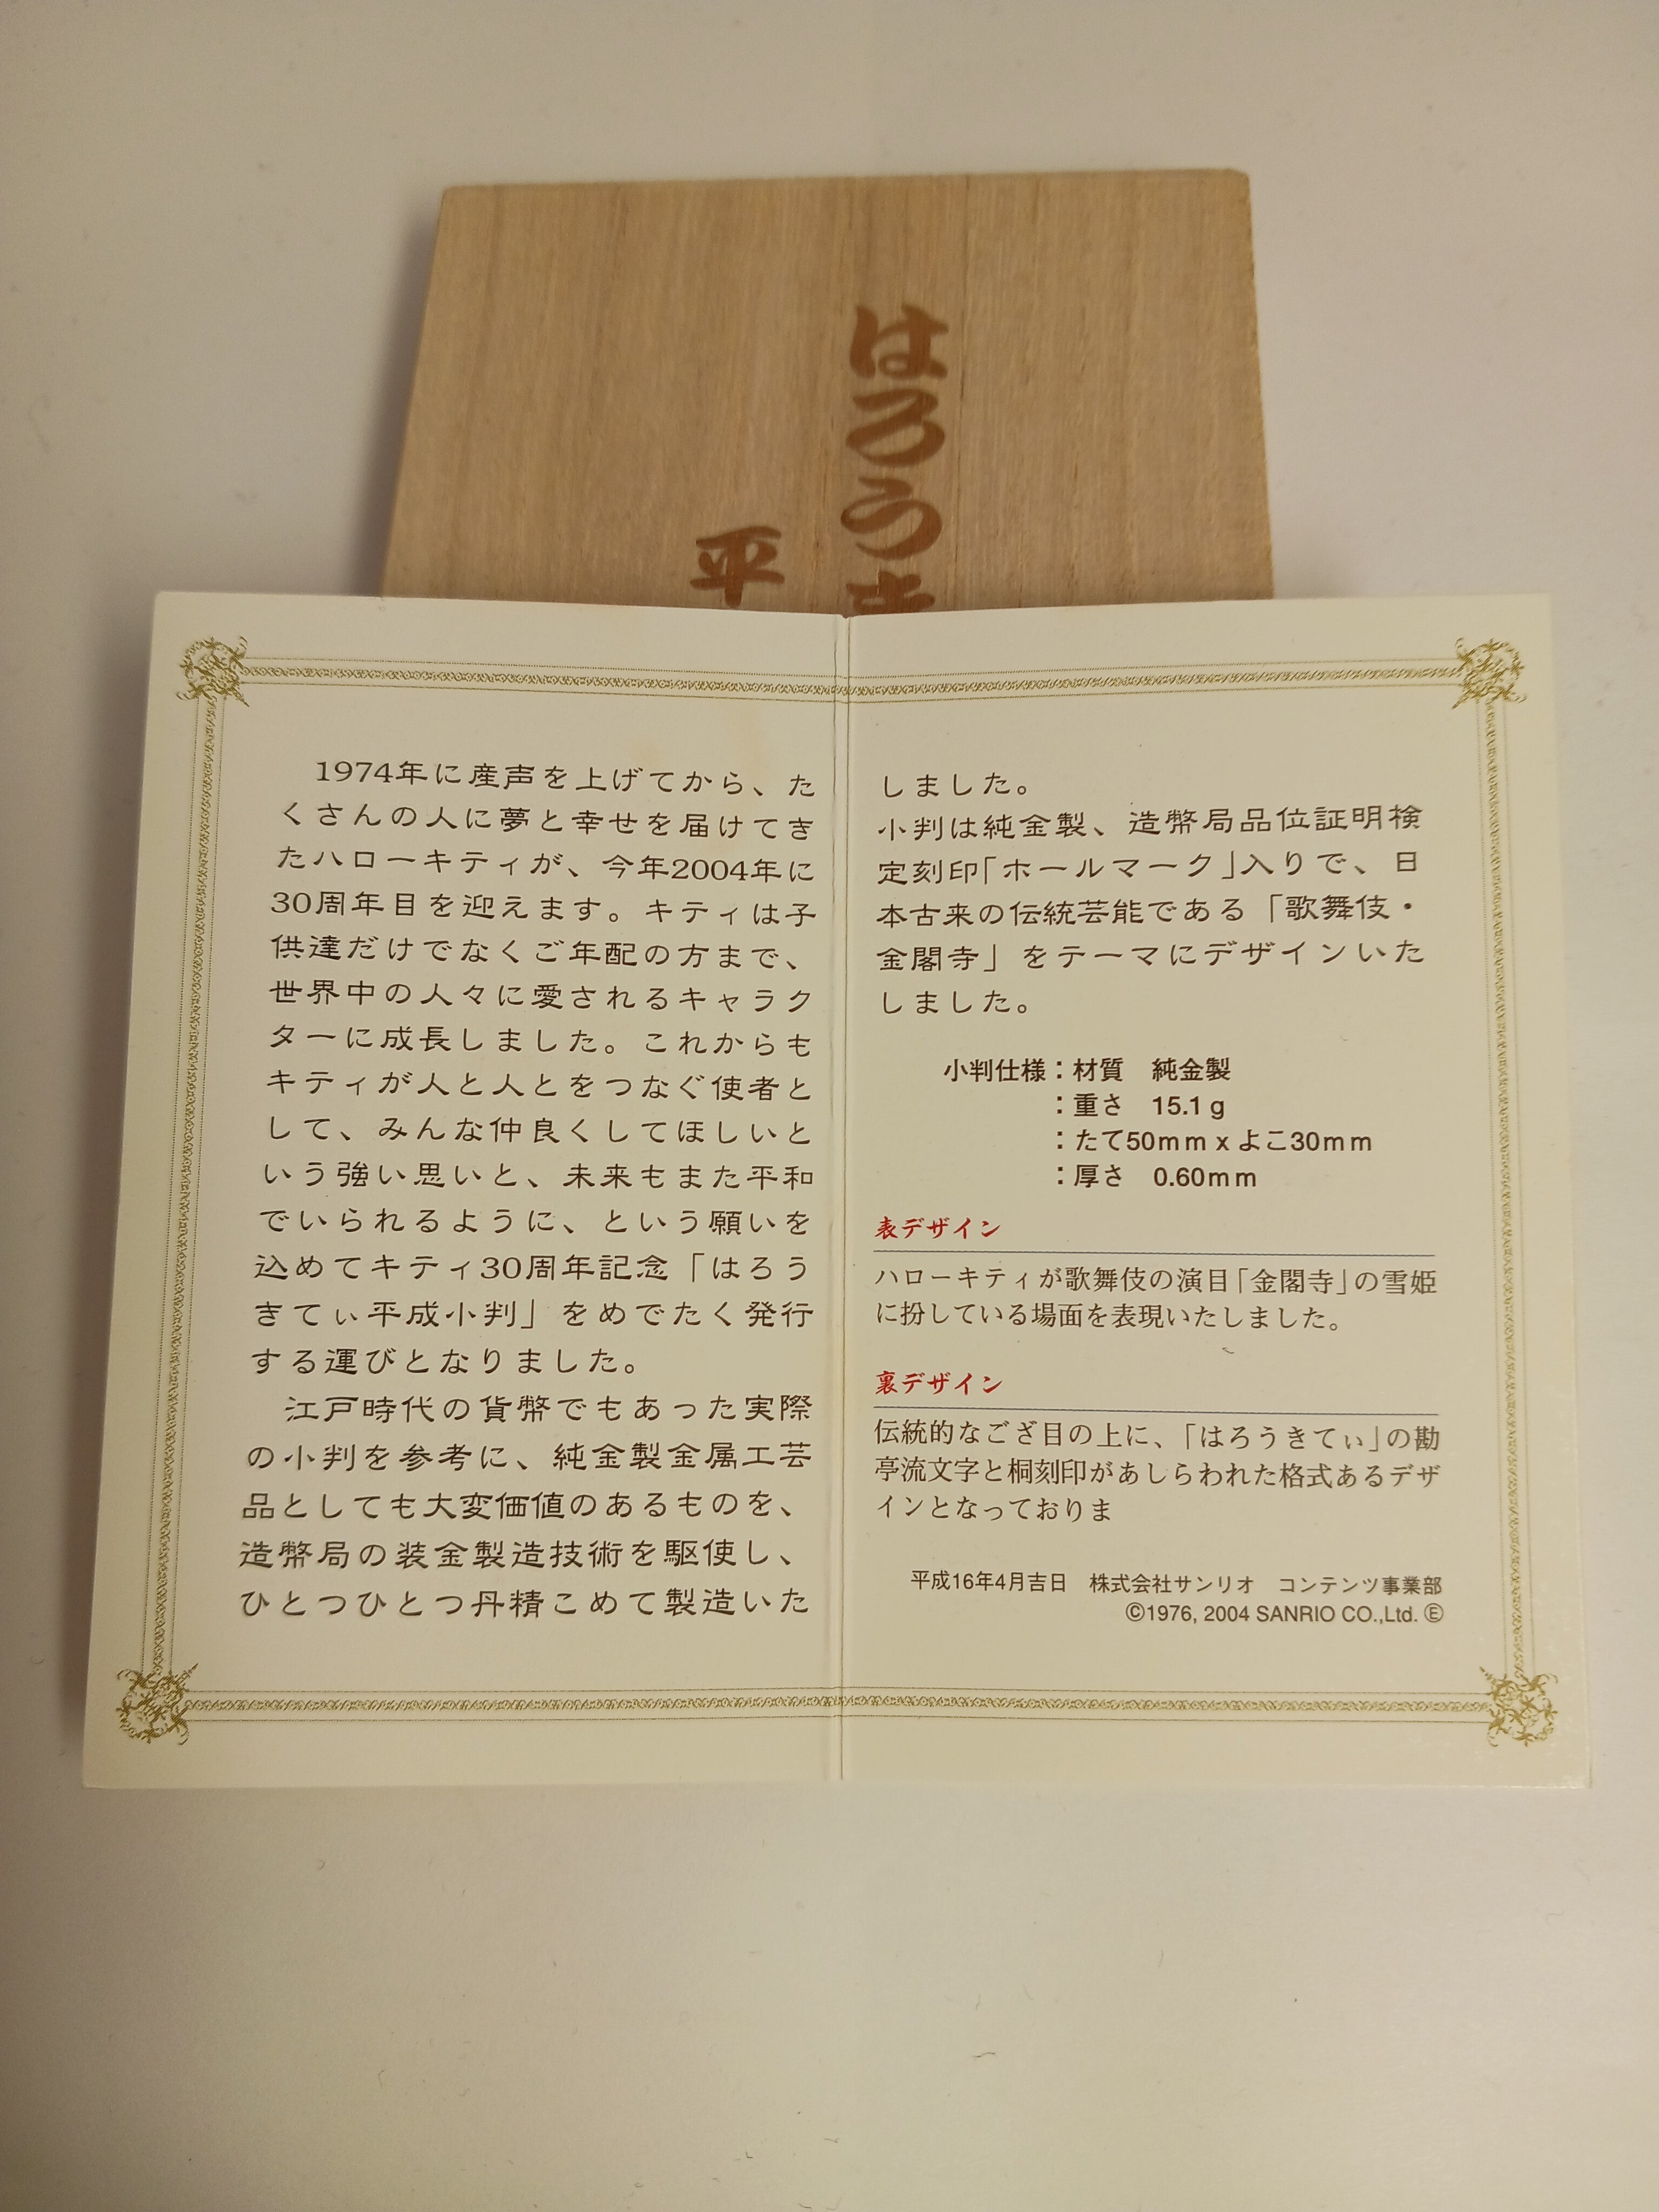 はろうき
平
1974年に産声を上げてから、た
くさんの人に夢と幸せを届けてき
たハローキティが、今年2004年に
30周年目を迎えます。キティは子
供達だけでなくご年配の方まで、
世界中の人々に愛されるキャラク
ターに成長しました。これからも
キティが人と人とをつなぐ使者と
して、みんな仲良くしてほしいと
いう強い思いと、未来もまた平和
でいられるように、という願いを
込めてキティ30周年記念「はろう
きてぃ平成小判」をめでたく発行
する運びとなりました。
江戸時代の貨幣でもあった実際
の小判を参考に、純金製金属工芸
品としても大変価値のあるものを、
造幣局の装金製造技術を駆使し、
ひとつひとつ丹精こめて製造いた
しました。
小判は純金製、造幣局品位証明検
定刻印「ホールマーク」入りで、日
本古来の伝統芸能である「歌舞伎・
金閣寺」をテーマにデザインいた
しました。
小判仕様：材質　純金製
：重さ　15.1ｇ
：たて50mm x よこ30mm
：厚さ　0.60mm
表デザイン
ハローキティが歌舞伎の演目「金閣寺」の雪姫
に扮している場面を表現いたしました。
裏デザイン
伝統的なござ目の上に、「はろうきてぃ」の勘
亭流文字と桐刻印があしらわれた格式あるデザ
インとなっておりま
平成16年4月吉日　株式会社サンリオ　コンテンツ事業部
©1976, 2004 SANRIO CO.,Ltd. Ⓔ